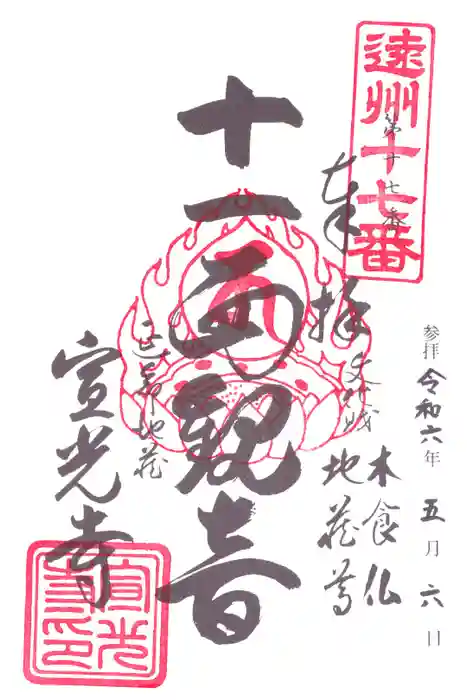 参拝 令和六年 五月六日
遠州十七番
第十七番
奉拝
木食仏
地蔵尊
十一面観音
延命地蔵
宣光寺
宣光
寺印